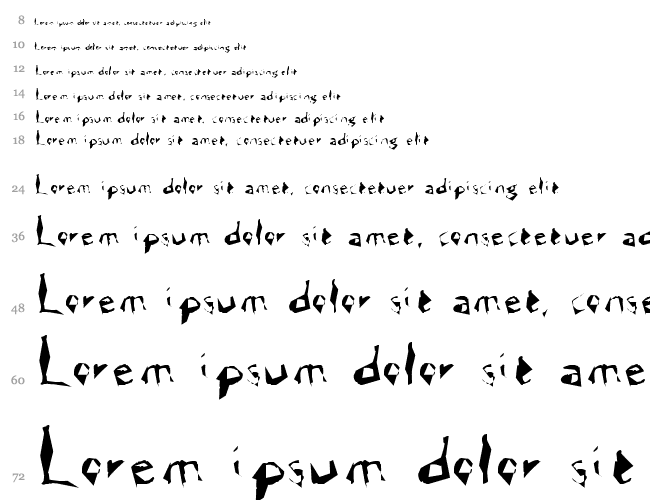 8 Lorem ipsum dolor sit amet, consectetuer adipiscing elit
10 Lorem ipsum dolor sit amet, consectetuer adipiscing elit
12 Lorem ipsum dolor sit amet, consectetuer adipiscing elit
14 Lorem ipsum dolor sit amet, consectetuer adipiscing elit
16 Lorem ipsum dolor sit amet, consectetuer adipiscing elit
18 Lorem ipsum dolor sit amet, consectetuer adipiscing elit
24 Lorem ipsum dolor sit amet, consectetuer adipiscing elit
36 Lorem ipsum dolor sit amet, consectetuer ad
48 Lorem ipsum dolor sit amet, conse
60 Lorem ipsum dolor sit ame
72 Lorem ipsum dolor sit